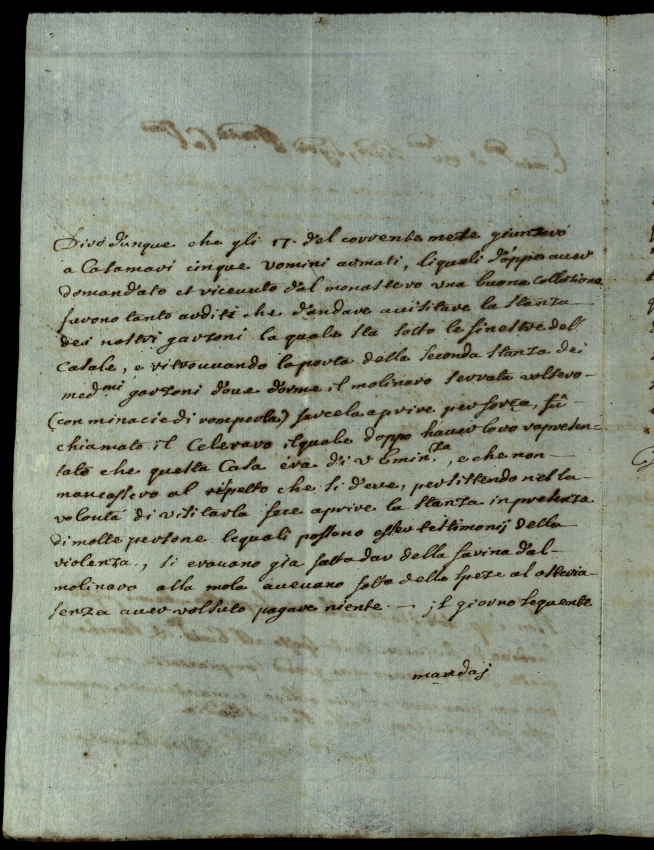 Dirò dunque che gli 17. del corrente mese giunsero
a Casamari cinque uomini armati, li quali d'oppo aver
domandato et ricevuto dal monastero una buona collatione
furono tanto arditi che d'andare a visitare la stanza
dei nostri garzoni la quale sta sotto le finestre del
Casale, e ritrovando la porta della seconda stanza dei
med.mi garzoni d'ove dorme il molinaro serrata volsero
(con minacie di romperla) farcela aprire per forza, fù
chiamato il Celeraro il quale d'oppo haver loro rapresen-
tato che questa Casa era di V Emin.za, e che non
mancassero al rispetto che si deve, persistendo nella
voluntà di visitarla fece aprire la stanza in presenza
di molte persone lequali possono esser testimonij della
violenza, si erauano gia fatta dar della farina dal
molinaro alla mola aueuano fatto delle speze al osteria
senza auer volsuto pagare niente. — il giorno sequente
mandaj